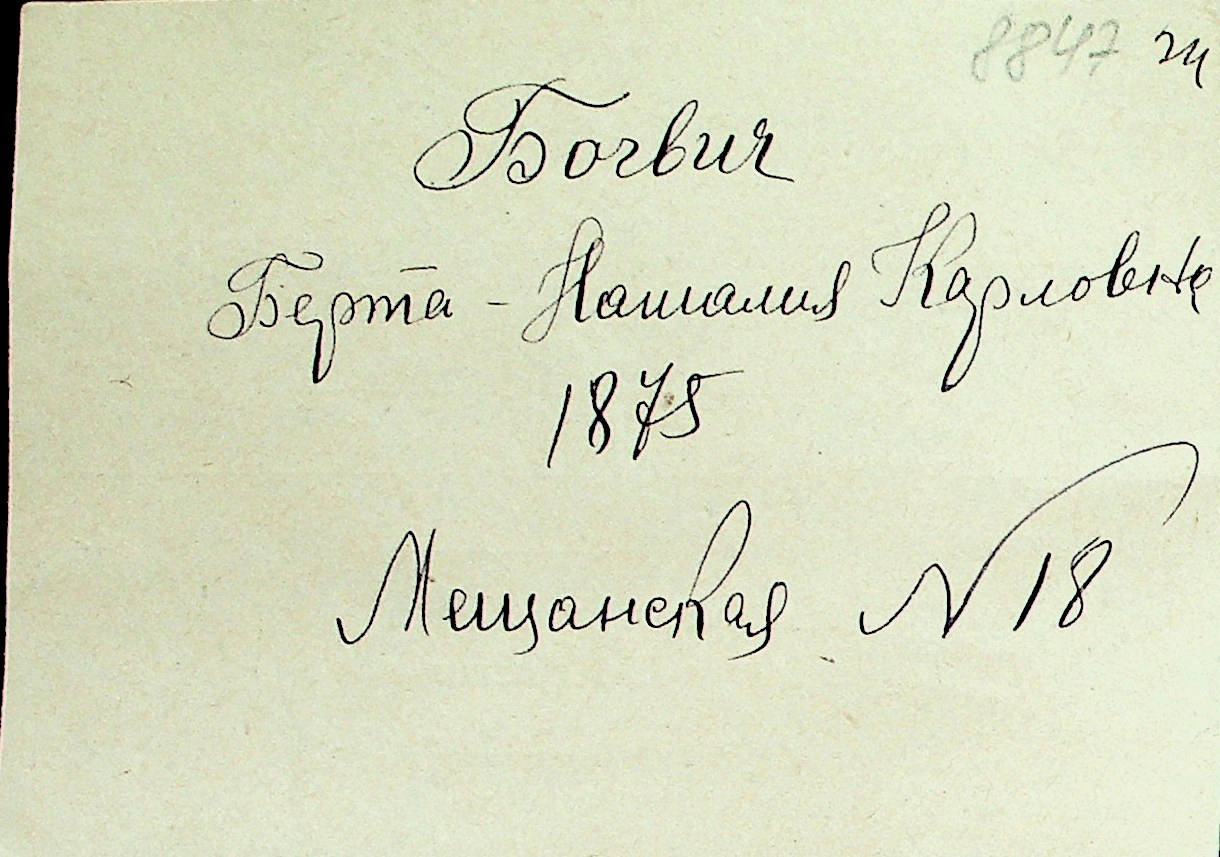 8847
Богвич
Берта - Наталия Карловна
1875
Мещанская N 18